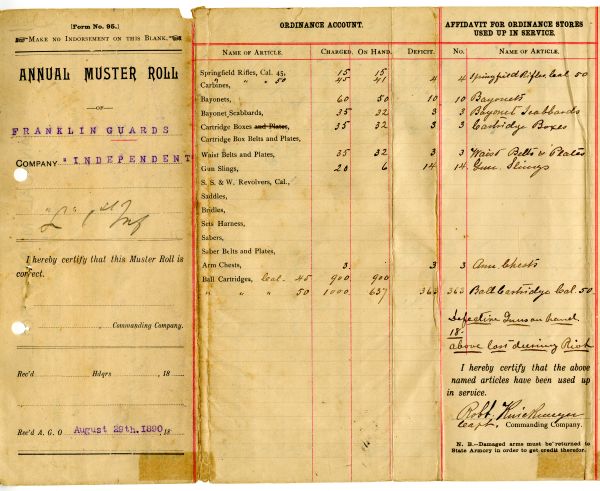 [Form No. 95.]
MAKE NO INDORSEMENT ON THIS BLANK.
ANNUAL MUSTER ROLL
—OF—
FRANKLIN GUARDS
COMPANY "INDEPENDENT"
"L" 1st Inf
I hereby certify that this Muster Roll is
correct.
Commanding Company.
Rec'd Hdqrs , 18
Rec'd A. G. O August 29th. 1890 , 18
ORDINANCE ACCOUNT.
NAME OF ARTICLE. CHARGED. ON HAND. DEFICIT.
Springfield Rifles, Cal. 45, 15 15
Carbines, " " 50 45 41 4
Bayonets, 60 50 10
Bayonet Scabbards, 35 32 3
Cartridge Boxes and Plates, 35 32 3
Cartridge Box Belts and Plates,
Waist Belts and Plates, 35 32 3
Gun Slings, 20 6 14
S. S. & W. Revolvers, Cal.,
Saddles,
Bridles,
Sets Harness,
Sabers,
Saber Belts and Plates,
Arm Chests, 3 3
Ball Cartridges, Cal. 45 900 900
" " " 50 1000 637 363
AFFIDAVIT FOR ORDINANCE STORES
USED UP IN SERVICE.
No. NAME OF ARTICLE.
4 Springfield Rifles Cal 50
10 Bayonets
3 Bayonet Scabbards
3 Cartridge Boxes
3 Waist Belts & Plates
14 Gun Slings
3 Arm Chests
363 Ball Cartridge Cal. 50
Defective Guns on hand
18-
above lost during Riot
I hereby certify that the above
named articles have been used up
in service.
Robt.
Capt. Commanding Company.
N. B.—Damaged arms must be returned to
State Armory in order to get credit therefor.